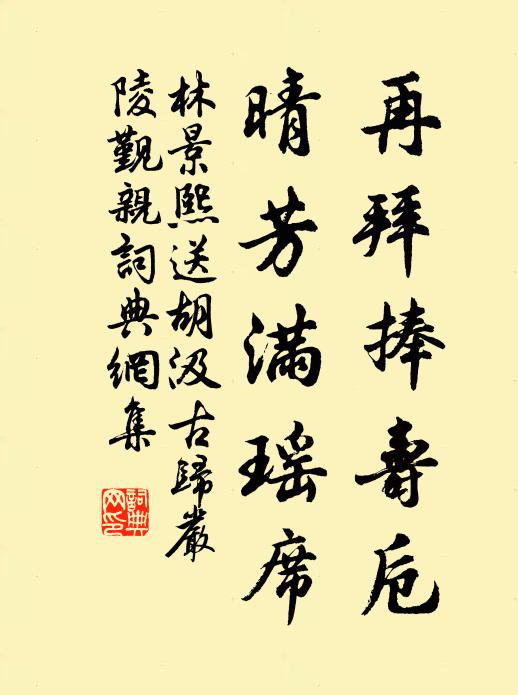 再拜捧壽卮
晴芳滿瑶席
林景熙送胡汲古歸嚴
陵觐親詞典網集
詞典
网印